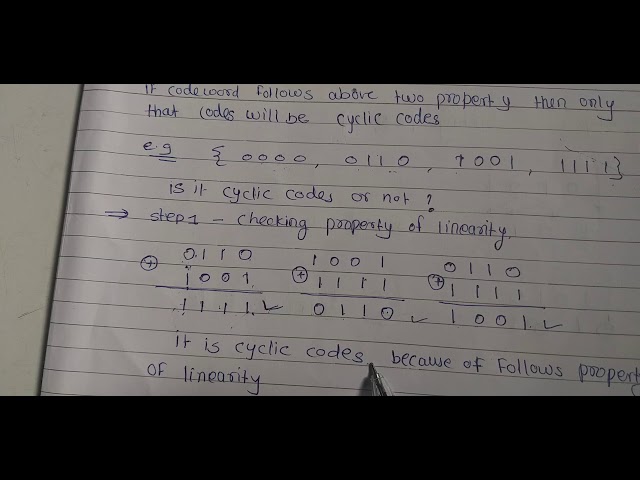 If codeword follows above two property then only
that codes will be cyclic codes
e.g { 0000, 0110, 1001, 1111}
Is it cyclic codes or not ?
⇒ step 1 - checking property of linearity.
0110 1001 0110
⊕ 1001 ⊕ 1111 ⊕ 1111
1111 ✓ 0110 ✓ 1001 ✓
it is cyclic codes because of follows propert
of linearity